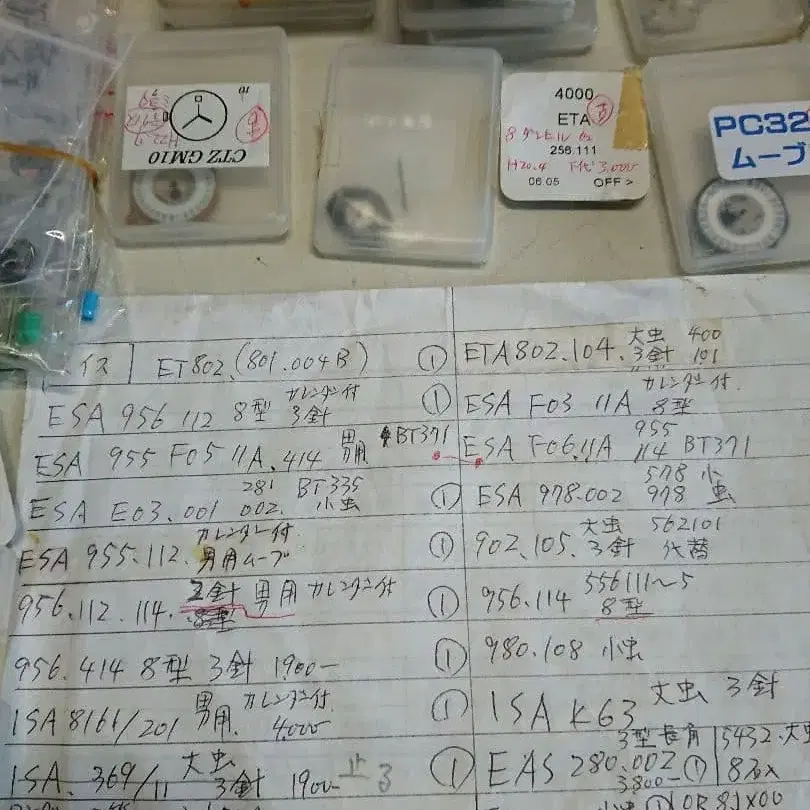 CTZ GM10
4000
ETA
256.111
H20.4 下代 3,000
06.05 OFF >
PC32
ムーブ
イス ET802.(801.004B)
ESA 956 112 8型 カレンダー付 3針
ESA 955 F05 11A.414 男用 BT371
ESA E03.001 281 002. BT335 小虫
ESA 955.112. カレンダー付 男用ムーブ
956.112.114. 3針 男用 カレンダー付
8型
956.414 8型 3針 1900-
ISA 8161/201 男用 カレンダー付 4,000
ISA. 369/11 大虫 3針 1900- 止
① ETA802.104. 大虫 3針 400 101
① ESA F03 11A カレンダー付 8型
ESA F06.11A 955 114 BT371
① ESA 978.002 578 978 小虫
① 902.105. 大虫 3針 562101 代替
① 956.114 556111〜5 8型
① 980.108 小虫
① ISA K63 大虫 3針
① EAS 280.002 3型長角 3800- ①
5432.大虫